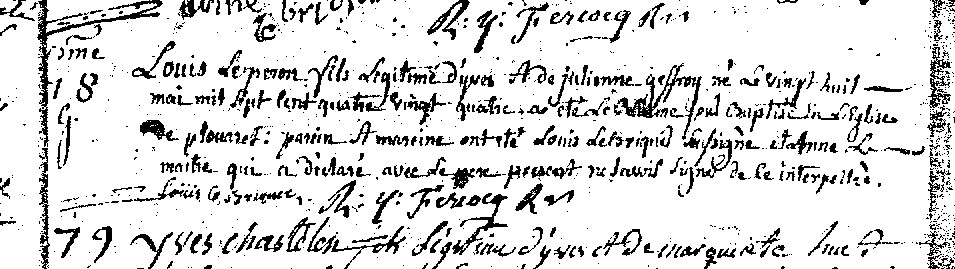 R: y: Fercocq Rr
78 Louis Le peron fils Legitime d'yves et de julienne geffroy né Le vingt huit
G. mai mil sept cent quatre vingt quatre a eté Le même jour baptisé en L'Eglise
de plouaret: parein et mareine ont eté Louis Le brique soussigné et Anne Le
maitre qui a déclaré avec Le pere present ne savoir signer de ce interpellés.
Louis Le Bricquer R: y: Fercocq Rr
79 yves chastelen fils Légitime d'yves et de marguerite